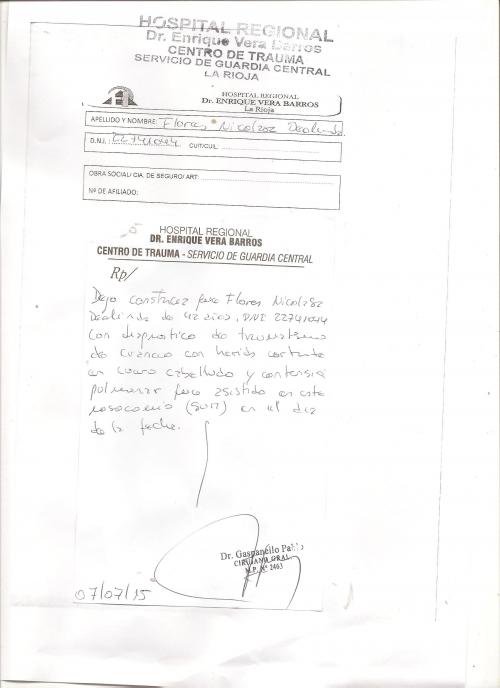 HOSPITAL REGIONAL
Dr. Enrique Vera Barros
CENTRO DE TRAUMA
SERVICIO DE GUARDIA CENTRAL
LA RIOJA
HOSPITAL REGIONAL
Dr. ENRIQUE VERA BARROS
La Rioja
APELLIDO Y NOMBRE: Flores Nicolasa Deolinda.
D.N.I.: 22741044 CUIT/CUIL:
OBRA SOCIAL/ CIA. DE SEGURO/ ART:
Nº DE AFILIADO:
HOSPITAL REGIONAL
DR. ENRIQUE VERA BARROS
CENTRO DE TRAUMA - SERVICIO DE GUARDIA CENTRAL
Rp/
Dejo constancia que Flores Nicolasa
Deolinda de 42 años, DNI 22741044
con diagnostico de traumatismo
de craneo con herida cortante
en cuero cabelludo y contusion
pulmonar fue asistido en este
nosocomio en el dia
de la fecha.
Dr. Gaspanello
CIRUJANO GRAL.
M.P. Nº 2403
07/07/15